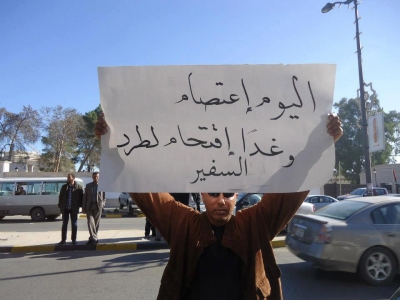 اليوم إعتصام
وغداً إقتحام لطرد
السفير